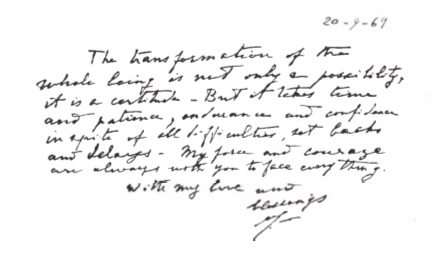 20-9-69
The transformation of the
whole being is not only a possibility,
it is a certitude - But it takes time
and patience, endurance and confidence
in spite of all difficulties, set backs
and delays - My force and courage
are always with you to face every thing.
with my love and
blessings